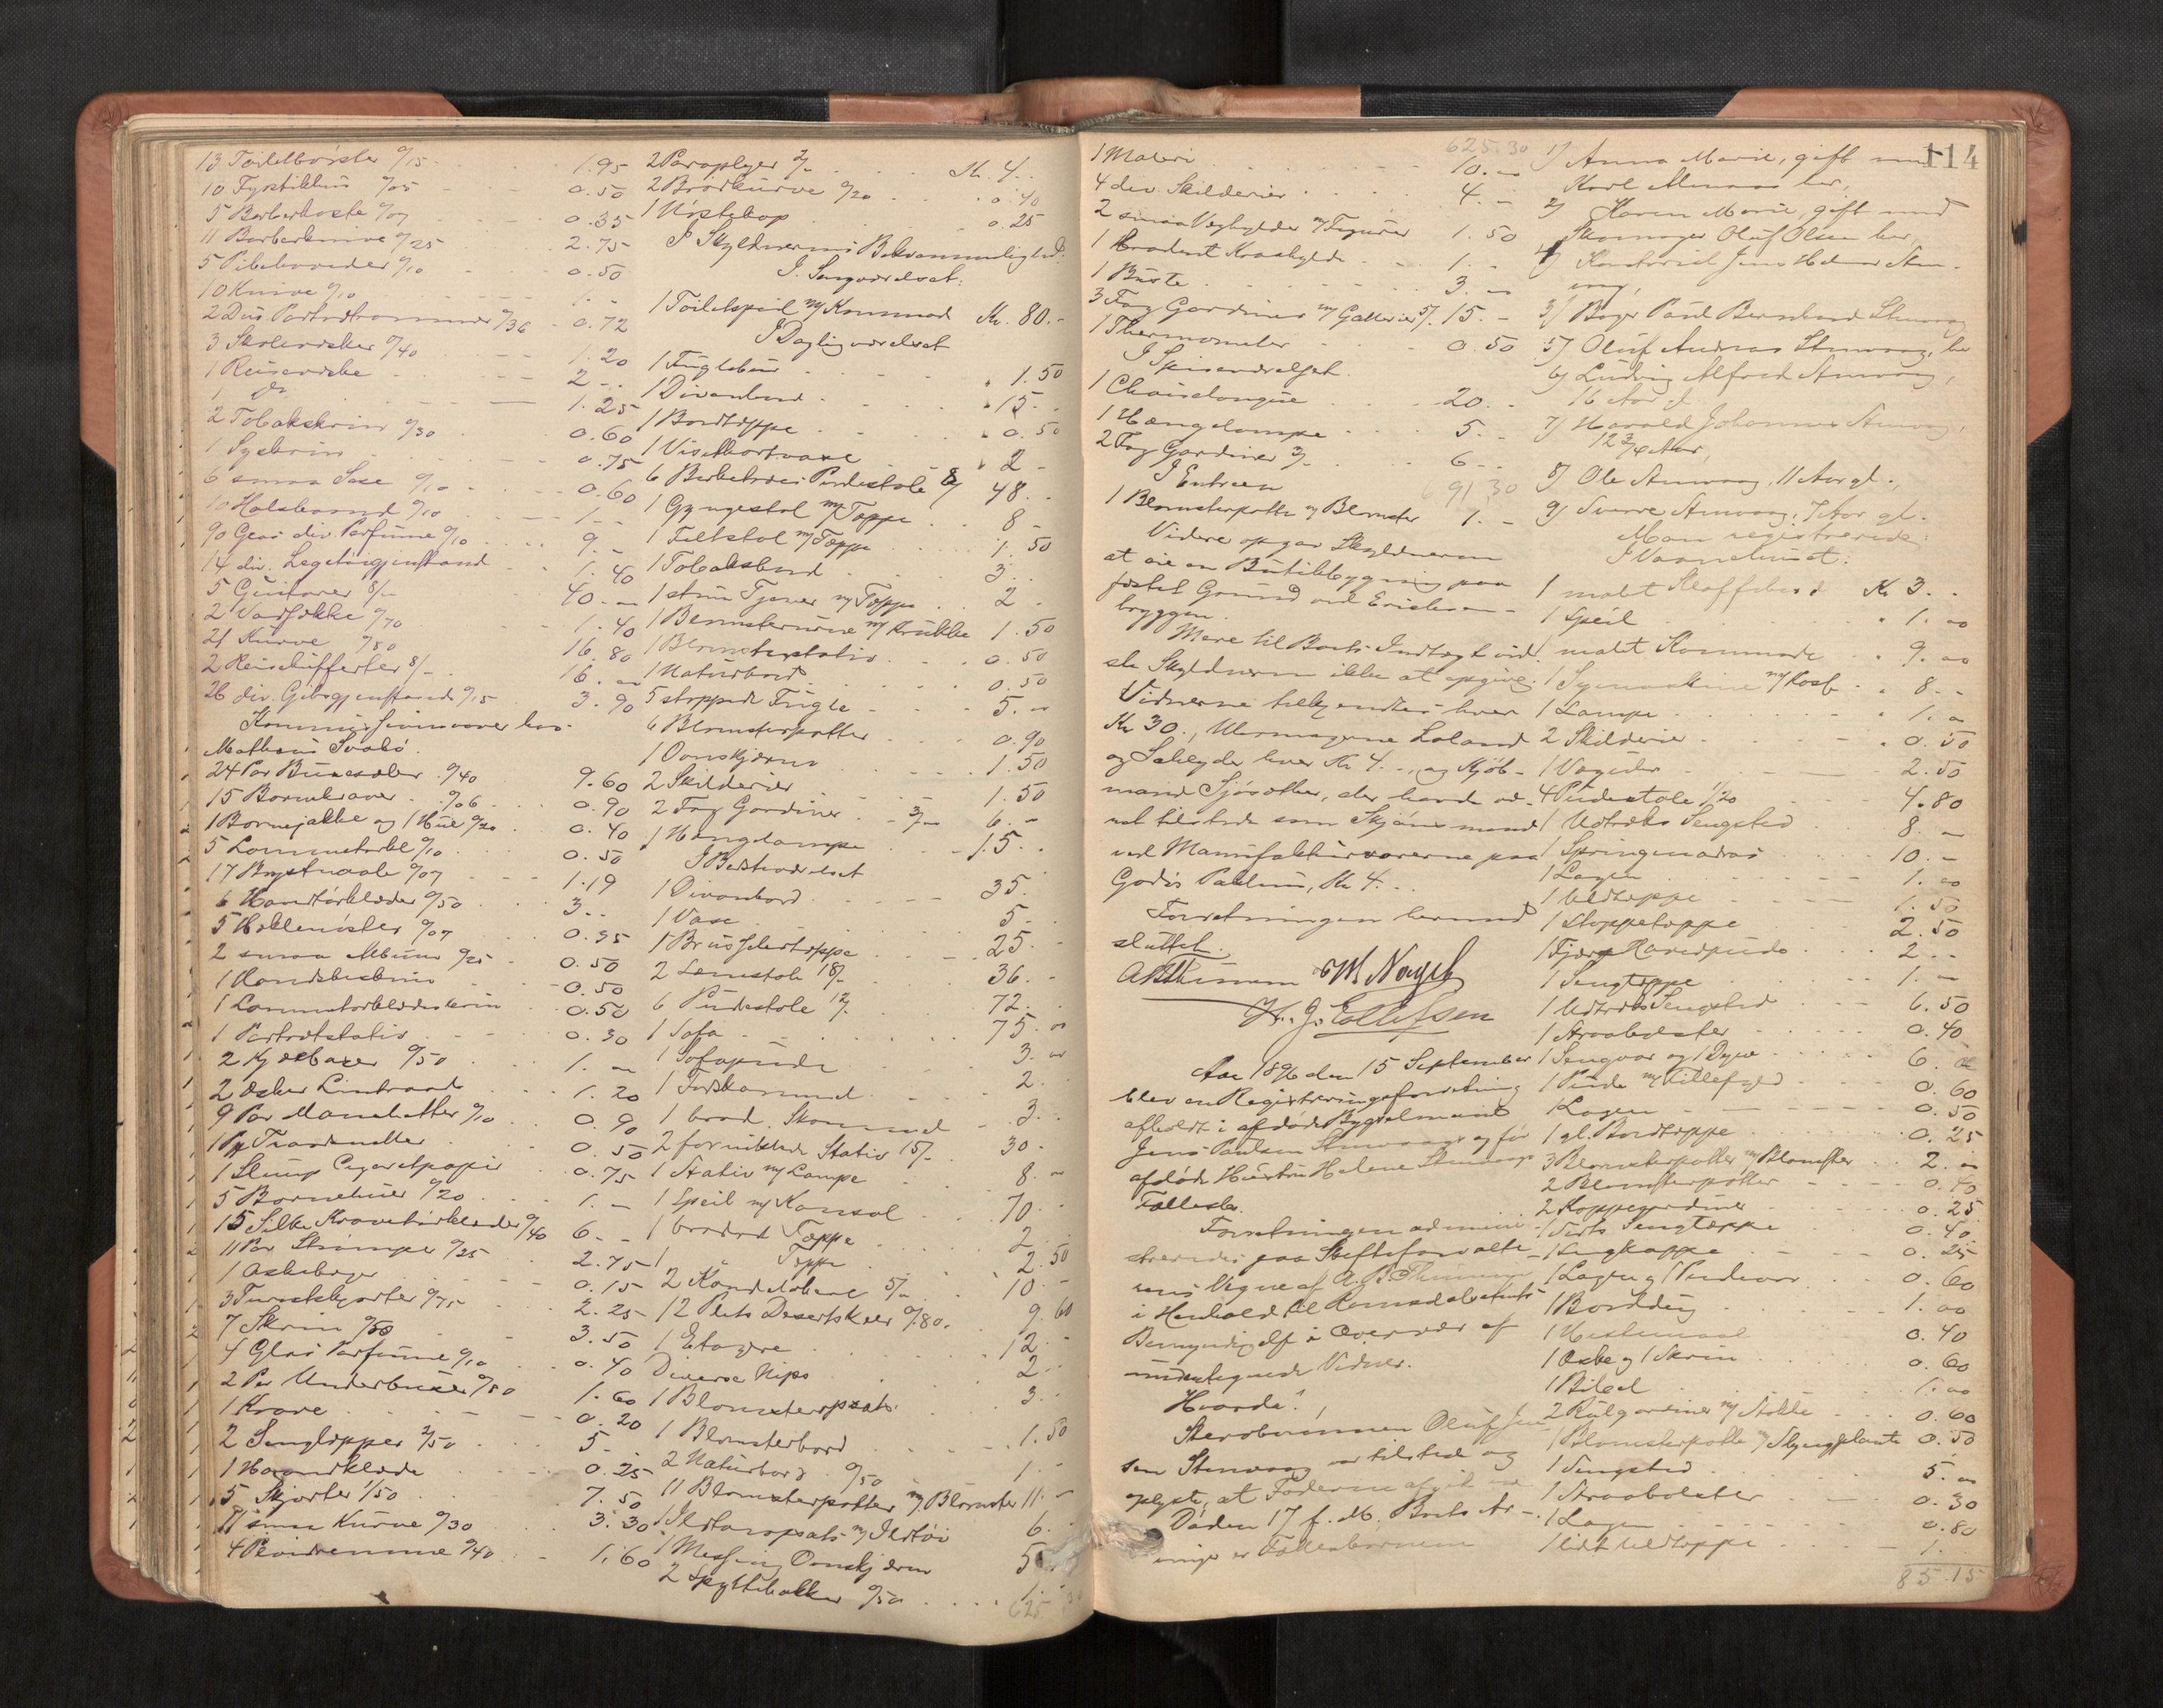 13 Toiletbörster 0/15 1.95
10 Fyrstikhus 0/05 0.50
5 Barberkoste 0/07 0.35
11 Barberknive 0/25 2.75
5 Pibehoveder 0/10 0.50
10 Knive 0/10 1.-
2 Dus. Portrætrammer 0/36 0.72
3 Skolevæsker 0/40 1.20
1 Reisevæske 2.-
1 do 1.25
2 Tobakskrin 0/30 0.60
1 Syskrin 0.75
6 smaa Saxe 0/10 0.60
10 Halsbaand 0/10 1.-
90 Glas div. Parfume 0/10 9.-
14 div. Legetöigjenstand 1.40
5 Guitarer 8/- 40.-
2 Vadsække 0/70 1.40
21 Kurve 0/80 16.80
2 Reisekufferter 8/- 16.-
26 div. Gibsgjenstande 0/15 3.90
Kommissionsvarer hos
Mathias Svabö.
24 Par Buxeseler 0/40 9.60
15 Barnekraver 0/06 0.90
1 Barnejakke og 1 Hue 0/20 0.40
5 Lommetörkl. 0/10 0.50
17 Brystnaale 0/07 1.19
6 Haandtörklæder 0/50 3.-
5 Hæklenöster 0/07 0.35
2 smaa Album 0/25 0.50
1 Handskeskrin 0.50
1 Lommetörklædeskrin 0.50
1 Portrætstativ 0.30
2 Kjæeboxer 0/50 1.-
2 Æsker Lintraad 1.20
9 Par Manchetter 0/10 0.90
1 Pk Traadsneller 0.50
1 Slump Cigaretpapir 0.75
5 Barnehuer 0/20 1.-
15 Silke Kravetörklæder 0/40 6.-
11 Par Strömper 0/25 2.75
1 Askebæger 0.15
3 Turistskjorter 0/75 2.25
7 Skrin 0/50 3.50
4 Glas Parfume 0/10 0.40
2 Par Underbuxer 0/80 1.60
1 Krave 0.20
2 Sengtæpper 2/50 5.-
1 Haandklæde 0.25
5 Skjorter 1/50 7.50
11 smaa Kurve 0/30 3.30
4 Livremme 0/40 1.60
2 Paraplyer 2/- Kr. 4.-
2 Brödkurve 0/20 0.40
1 Nöstekop 0.25
I Skyldnerens Bekvemmelighed:
I Sengværelset:
1 Toiletspeil m/ Kommode Kr. 80.-
I Dagligværelset
1 Fuglebur 1.50
1 Divanbord 15.-
1 Bordtæppe 0.50
1 Visitkortvase 2.-
6 Birketræes Pindestole 8/ 48.-
1 Gyngestol m/ Tæppe 8.-
1 Feltstol m/ Tæppe 1.50
1 Tobaksbord 3.-
1 stum Tjener m/ Tæppe 2.-
1 Blomsterurne m/ Krukke 1.50
1 Blomsterstativ 0.50
1 Naturbord 0.50
5 stoppede Fugle 5.-
6 Blomsterpotter 0.90
1 Ovnskjærm 1.50
2 Skilderier 1.50
2 Fag Gardiner 3/- 6.-
1 Hængelampe 15.-
I Bestværelset
1 Divanbord 35.-
1 Vase 5.-
1 Brusselertæppe 25.-
2 Lænestole 18/- 36.-
6 Pindestole 12/- 72.-
1 Sofa 75.-
1 Sofapude 3.-
1 Fodskammel 2.-
1 brod. Skammel 3.-
2 forniklede Stativ 15/- 30.-
1 Stativ m/ Lampe 8.-
1 Speil m/ Konsol 70.-
1 broderet Tæppe 2.-
1 " Tæppe 2.50
2 Kandelabere 5/- 10.-
12 Plets Desertskeer 0/80. 9.60
1 Etagere 12.-
Diverse Nips 2.-
1 Blomsteropsats 3.-
1 Blomsterbord 1.50
2 Naturbord 0/50 1.-
11 Blomsterpotter m/ Blomster 11.-
1 Ildtangopsats m/ Ildtöi 6.-
1 Messing Ovnskjærm 5
2 Spyttebakker 0/50 1.-
625.30
114
625.30
1 Maleri 10.-
4 div. Skilderier 4.-
2 smaa Væghylder m/ Figurer 1.50
1 broderet Kraahylde 1.-
1 Büste 3.-
3 Fag Gardiner m/ Gallerier 5/. 15.-
1 Thermometer 0.50
I Spiseværelset.
1 Chaiselongue 20.-
1 Hængelampe 5.-
2 Fag Gardiner 3/- 6.-
I Entreen 691 30
1 Blomsterpotte m/ Blomster 1.-
Videre opgav Skyldneren
at eie en Butikbygning paa
fæstet Grund ved Erichsen-
bryggen.
Mere til Boets Indtægt vid-
ste Skyldneren ikke at opgive.
Vidnerne tilkjendtes hver
Kr 30., Urmagerne Loland
og Sakyde hver Kr 4.-, og Kjöb-
mand Sjöholt, der havde væ-
ret tilstede som Skjönsmand
ved Manufakturvarerne paa
Godös Pakhus, Kr 4.-.
Forretningen hermed
sluttet.
ABThinum OM Nagel
K. J. Ellefsen
Aar 1896 den 15 September
blev en Registreringsforretning
afholdt i afdöde Bygselmand
Jens Paulsen Stenvaags og för
afdöde Hustru Helene Stenvaags
Fællesbo.
Forretningen admini-
streredes paa Skifteforvalte-
rens Vegne af A. B. Thinum
i Henhold til Romsdals Amts
Bemyndigelse i Overvær af
undertegnede Vidner.
Hvorda!
Sterbbonen Oluf Jen
sen Stenvaag var tilstede og
oplyste, at Faderen afgik ved
Döden 17 f. M. Boets Ar-
vinger er Fællesbörnene
1) Anna Marie, gift med
Karl Menaas her,
2) Karen Marie, gift med
Skomager Oluf Olsen her,
4) Kontorist Jens Helmer Sten-
vaag,
3) Bager Paul Bernhard Stenvaag
5) Oluf Andreas Stenvaag, her
6) Ludvig Alfred Stenvaag,
16 Aar gl.
7) Harald Johannes Stenvaag,
12 3/4 Aar,
8) Ole Stenvaag, 11 Aar gl.,
9) Sverre Stenvaag, 7 Aar gl.
Man registrerede:
I Vaanehuset:
1 malet Klaffebord Kr 3.-
1 Speil 1.-
1 malet Kommode 9.-
1 Symaskine m/ Kasse 8.-
1 Lampe 1.-
2 Skilderier 0.50
1 Vægur 2.50
4 Pindestole 1/20 4.80
1 Udtræks Sengsted 8.-
1 Springmadras 10.-
1 Lagen 1.-
1 Uldtæppe 1.50
1 Stoppetæppe 2.50
1 Fjær Hovedpude 2.-
1 Sengtæppe 1.-
1 Udtræks Sengsted 6.50
1 Straabolster 0.40
1 Sengvar og 1 Dyne 6.
1 Pude m/ Fillefyld 0.60
1 Lagen 0.50
1 gl. Bordtæppe 0.25
3 Blomsterpotter m/ Blomster 2.-
2 Blomsterpotter 0.40
2 Kappegardiner 0.25
1 Sirts Sengtæppe 0.40
1 Sengkappe 0.25
1 Lagen og 1 Pudevar 0.60
1 Borddug 1.00
1 0.40
1 Öskje og 1 Skrin 0.60
1 Bibel 1.00
2 Rulgardiner m/ Stokke 0.60
1 Blomsterpotte m/ Slyngplante 0.50
1 Sengsted 5.-
1 Straabolster 0.30
1 Lagen 0.80
1 lidt Uldtæppe 1.
85.15